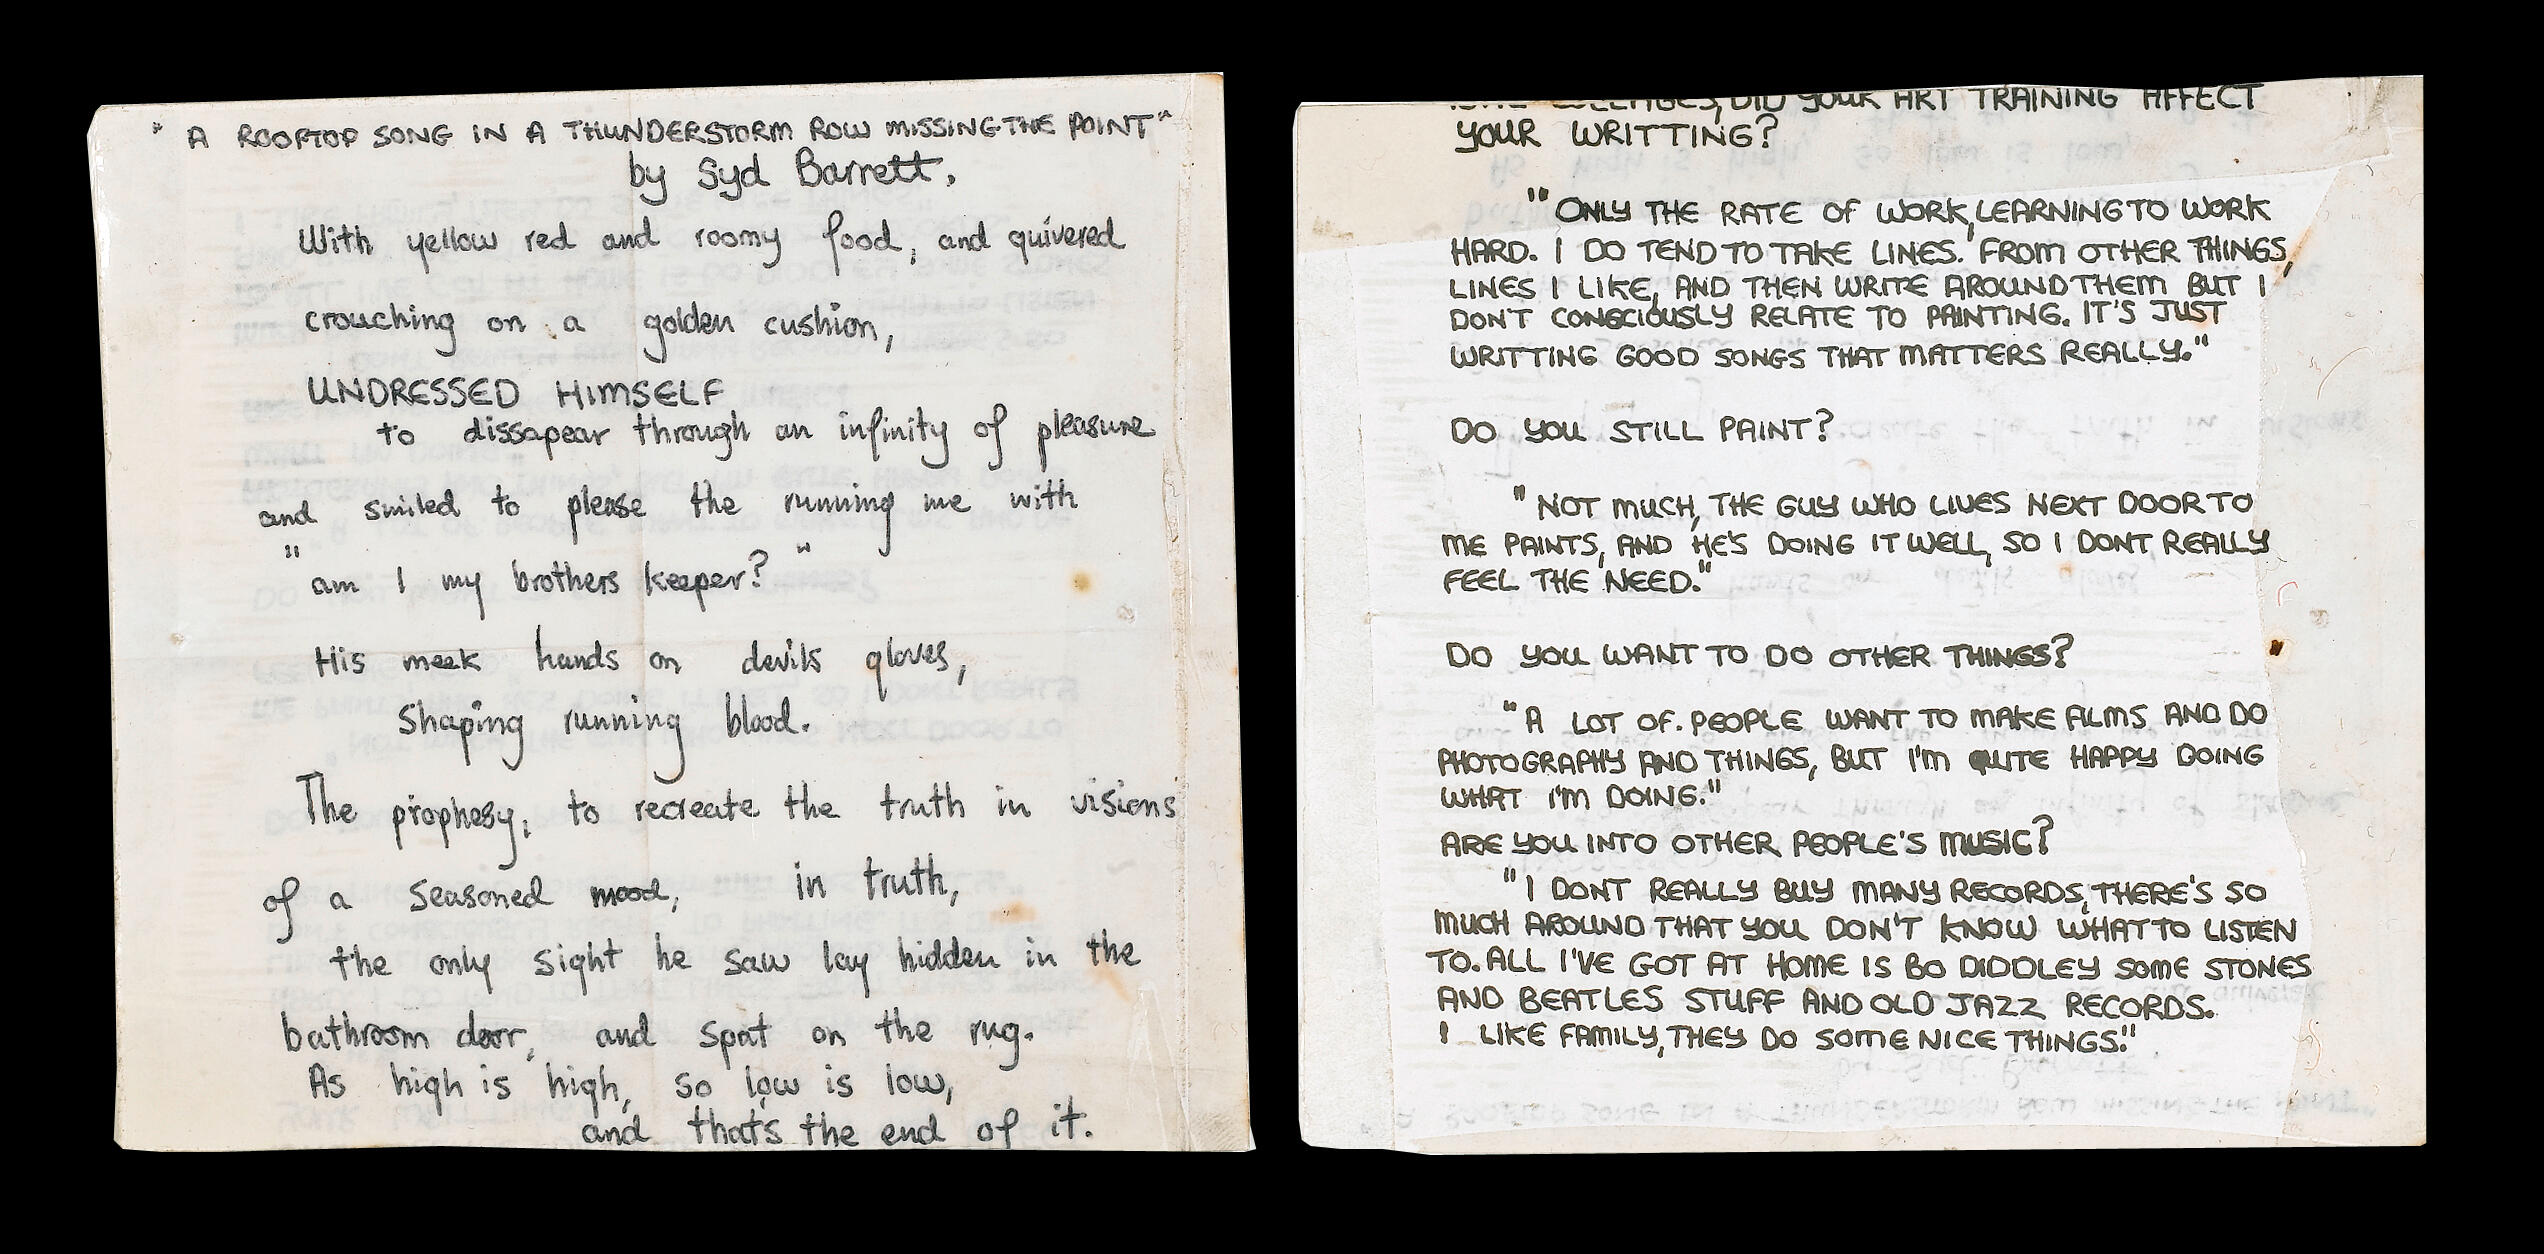 " A ROOFTOP SONG IN A THUNDERSTORM ROW MISSING THE POINT"
by Syd Barrett.
With yellow red and roomy food, and quivered
crouching on a golden cushion,
UNDRESSED HIMSELF
to dissapear through an infinity of pleasure
and smiled to please the running me with
" am I my brothers keeper? "
His meek hands on devils gloves,
Shaping running blood.
The prophesy, to recreate the truth in visions
of a seasoned mood, in truth,
the only sight he saw lay hidden in the
bathroom door, and spat on the rug.
As high is high, so low is low,
and that's the end of it.
COLLAGES, DID YOUR ART TRAINING AFFECT
YOUR WRITTING?
"ONLY THE RATE OF WORK, LEARNING TO WORK
HARD. I DO TEND TO TAKE LINES. FROM OTHER THINGS,
LINES I LIKE, AND THEN WRITE AROUND THEM BUT I
DON'T CONSCIOUSLY RELATE TO PAINTING. IT'S JUST
WRITTING GOOD SONGS THAT MATTERS REALLY."
DO YOU STILL PAINT?
"NOT MUCH, THE GUY WHO LIVES NEXT DOOR TO
ME PAINTS, AND HE'S DOING IT WELL, SO I DONT REALLY
FEEL THE NEED."
DO YOU WANT TO DO OTHER THINGS?
"A LOT OF. PEOPLE WANT TO MAKE FILMS AND DO
PHOTOGRAPHY AND THINGS, BUT I'M QUITE HAPPY DOING
WHAT I'M DOING."
ARE YOU INTO OTHER PEOPLE'S MUSIC?
"I DONT REALLY BUY MANY RECORDS, THERE'S SO
MUCH AROUND THAT YOU DON'T KNOW WHAT TO LISTEN
TO. ALL I'VE GOT AT HOME IS BO DIDDLEY SOME STONES
AND BEATLES STUFF AND OLD JAZZ RECORDS.
I LIKE FAMILY, THEY DO SOME NICE THINGS."